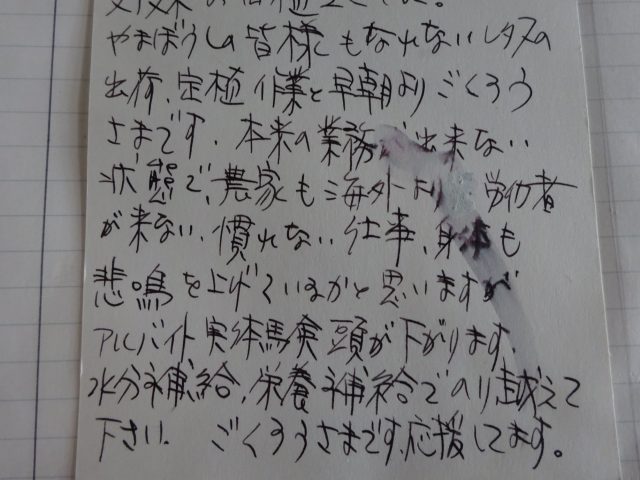 やまぼうしの皆様もなれないレタスの
出荷、定植作業と早朝よりごくろう
さまです、本来の業務が出来ない
状態で、農家も海外より労働者
が来ない、慣れない仕事、身体も
悲鳴を上げているかと思いますが
アルバイト実体験頭が下がります、
水分補給、栄養補給でのり越えて
下さい ごくろうさまです、応援してます。